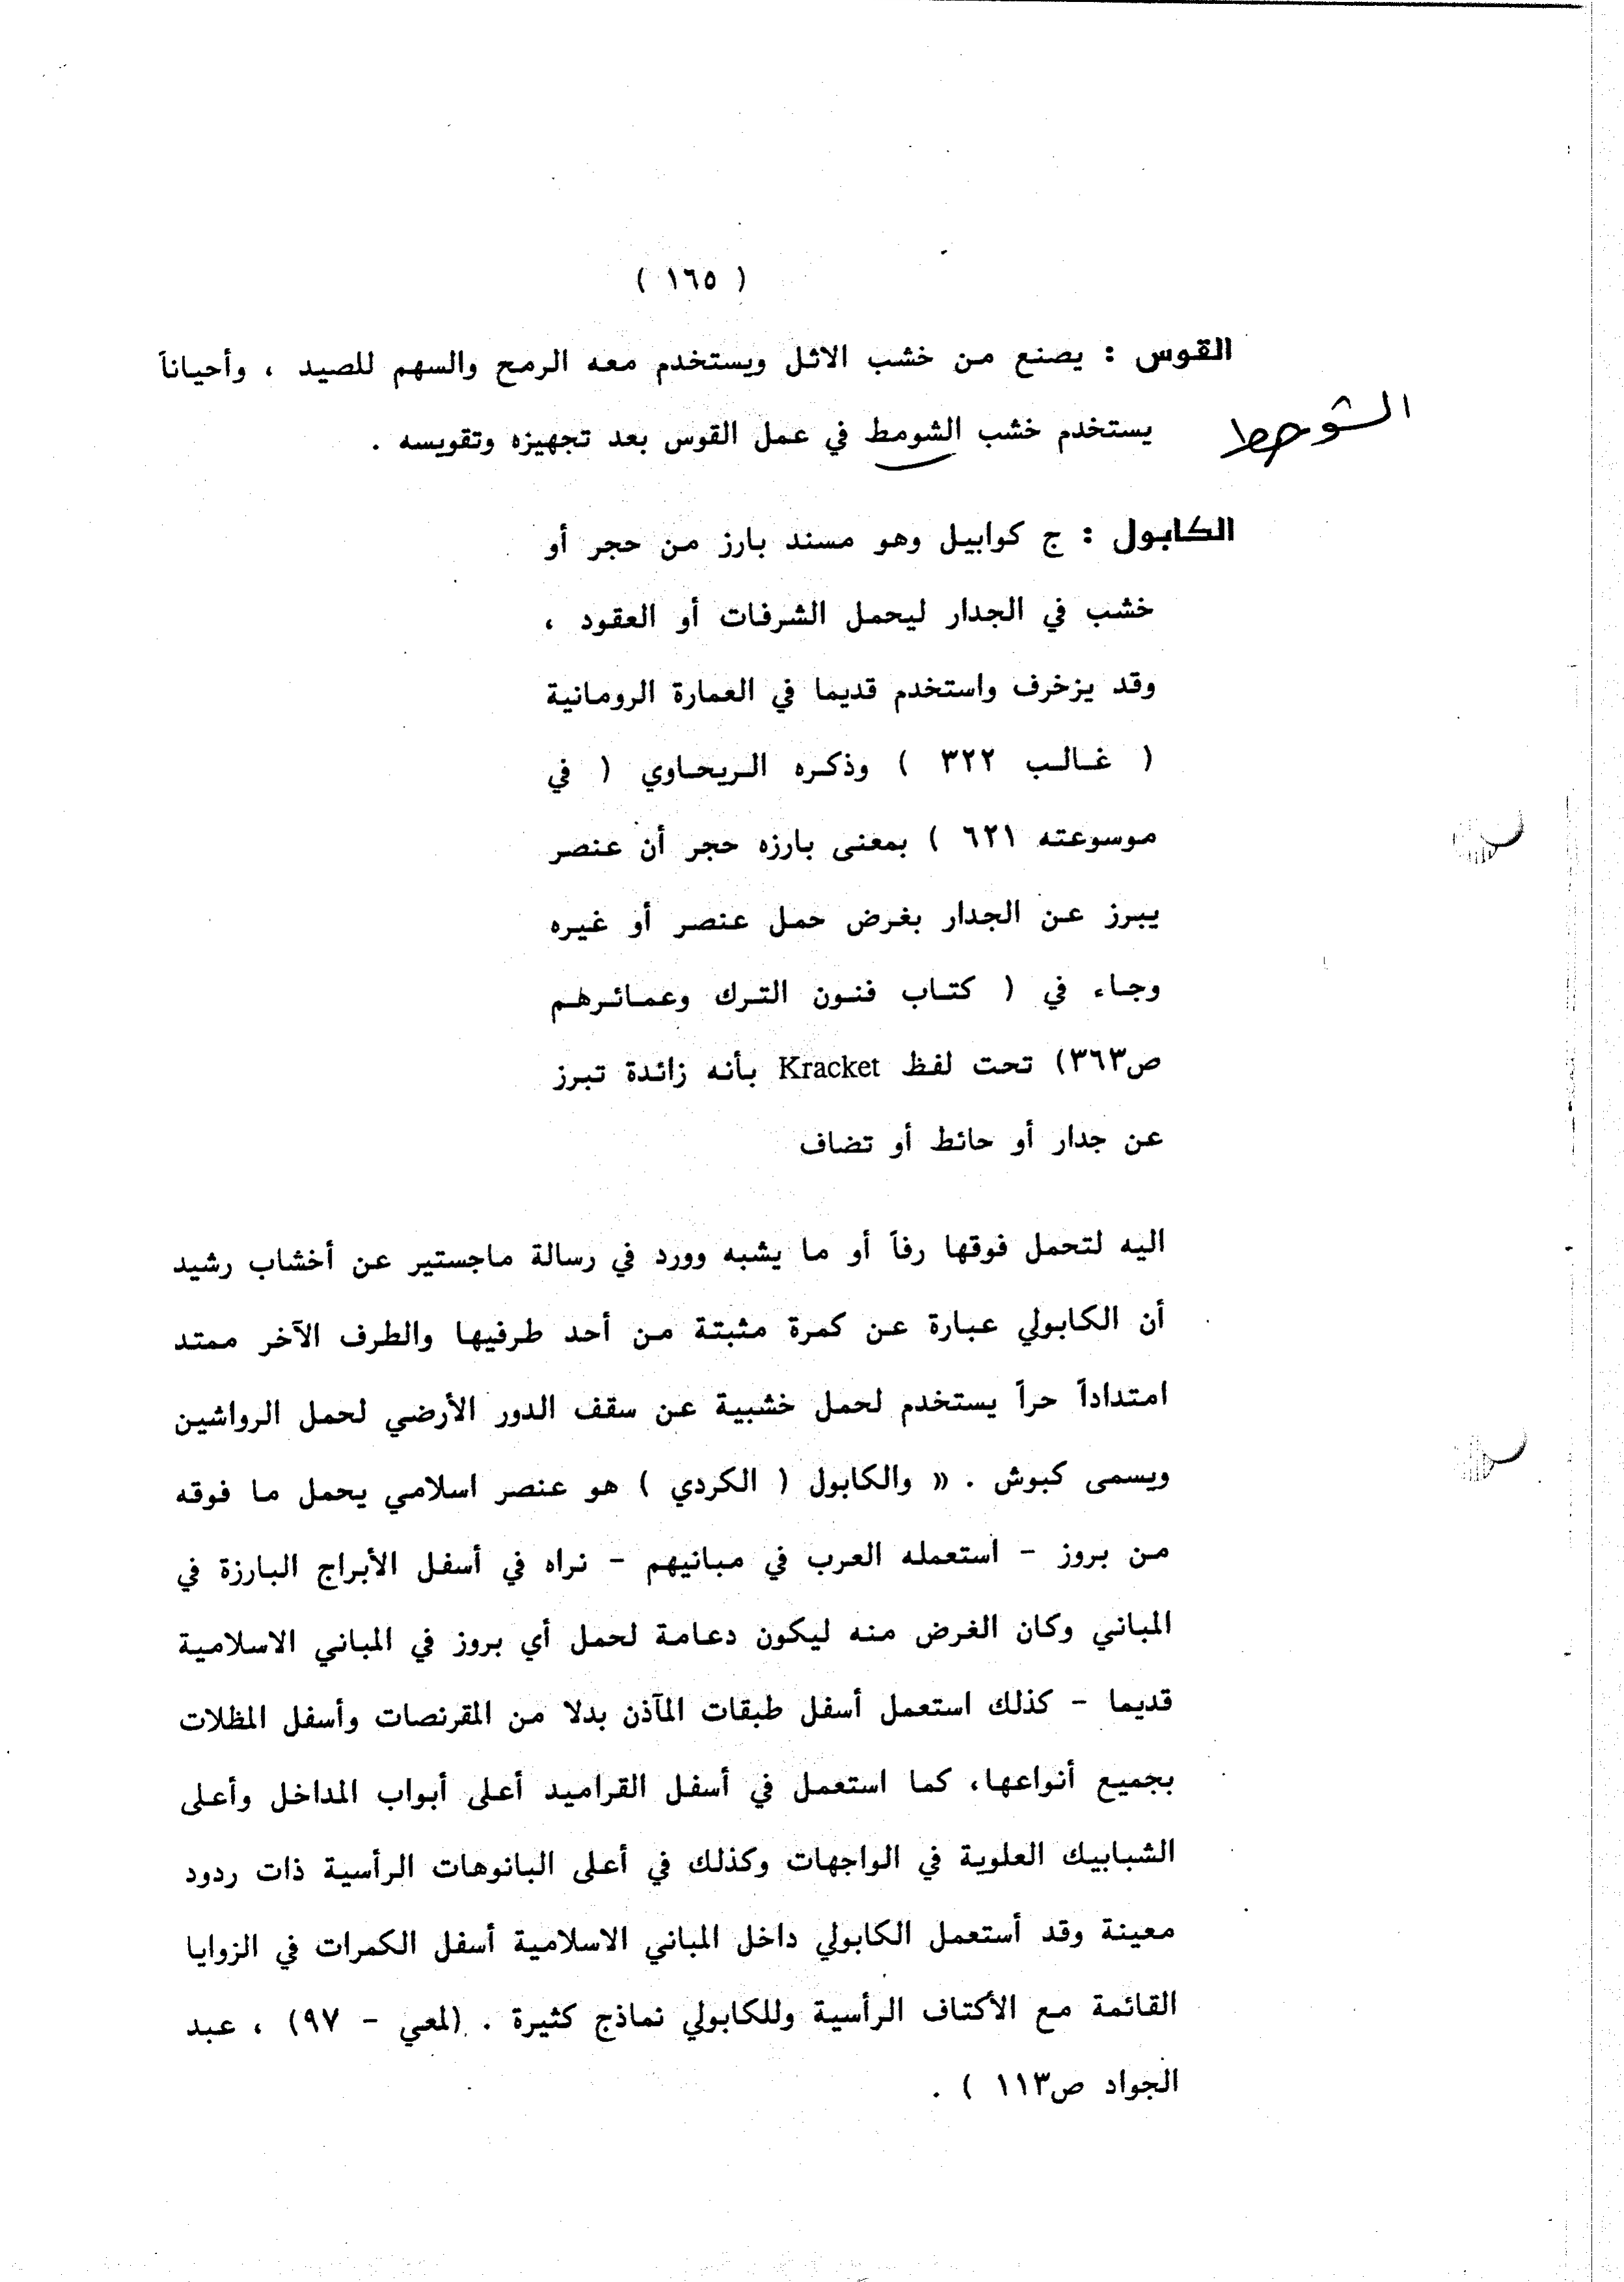 ( ١٦٥ )
القوس : يصنع من خشب الاثل ويستخدم معه الرمح والسهم للصيد ، وأحياناً
الشوحط
يستخدم خشب الشومط في عمل القوس بعد تجهيزه وتقويسه .
الكابول : ج كوابيل وهو مسند بارز من حجر أو
خشب في الجدار ليحمل الشرفات أو العقود ،
وقد يزخرف واستخدم قديما في العمارة الرومانية
( غالب ٣٢٢ ) وذكره الريحاوي ( في
موسوعته ٦٢١ ) بمعنى بارزه حجر أن عنصر
يبرز عن الجدار بغرض حمل عنصر أو غيره
وجاء في ( كتاب فنون الترك وعمائرهم
ص٣٦٣) تحت لفظ Kracket بأنه زائدة تبرز
عن جدار أو حائط أو تضاف
اليه لتحمل فوقها رفاً أو ما يشبه وورد في رسالة ماجستير عن أخشاب رشيد
أن الكابولي عبارة عن كمرة مثبتة من أحد طرفيها والطرف الآخر ممتد
امتداداً حراً يستخدم لحمل خشبية عن سقف الدور الأرضي لحمل الرواشين
ويسمى كبوش . « والكابول ( الكردي ) هو عنصر اسلامي يحمل ما فوقه
من بروز - استعمله العرب في مبانيهم - نراه في أسفل الأبراج البارزة في
المباني وكان الغرض منه ليكون دعامة لحمل أي بروز في المباني الاسلامية
قديما - كذلك استعمل أسفل طبقات المآذن بدلا من المقرنصات وأسفل المظلات
بجميع أنواعها، كما استعمل في أسفل القراميد أعلى أبواب المداخل وأعلى
الشبابيك العلوية في الواجهات وكذلك في أعلى البانوهات الرأسية ذات ردود
معينة وقد أستعمل الكابولي داخل المباني الاسلامية أسفل الكمرات في الزوايا
القائمة مع الأكتاف الرأسية وللكابولي نماذج كثيرة . (لمعي - ٩٧) ، عبد
الجواد ص١١٣ ) .